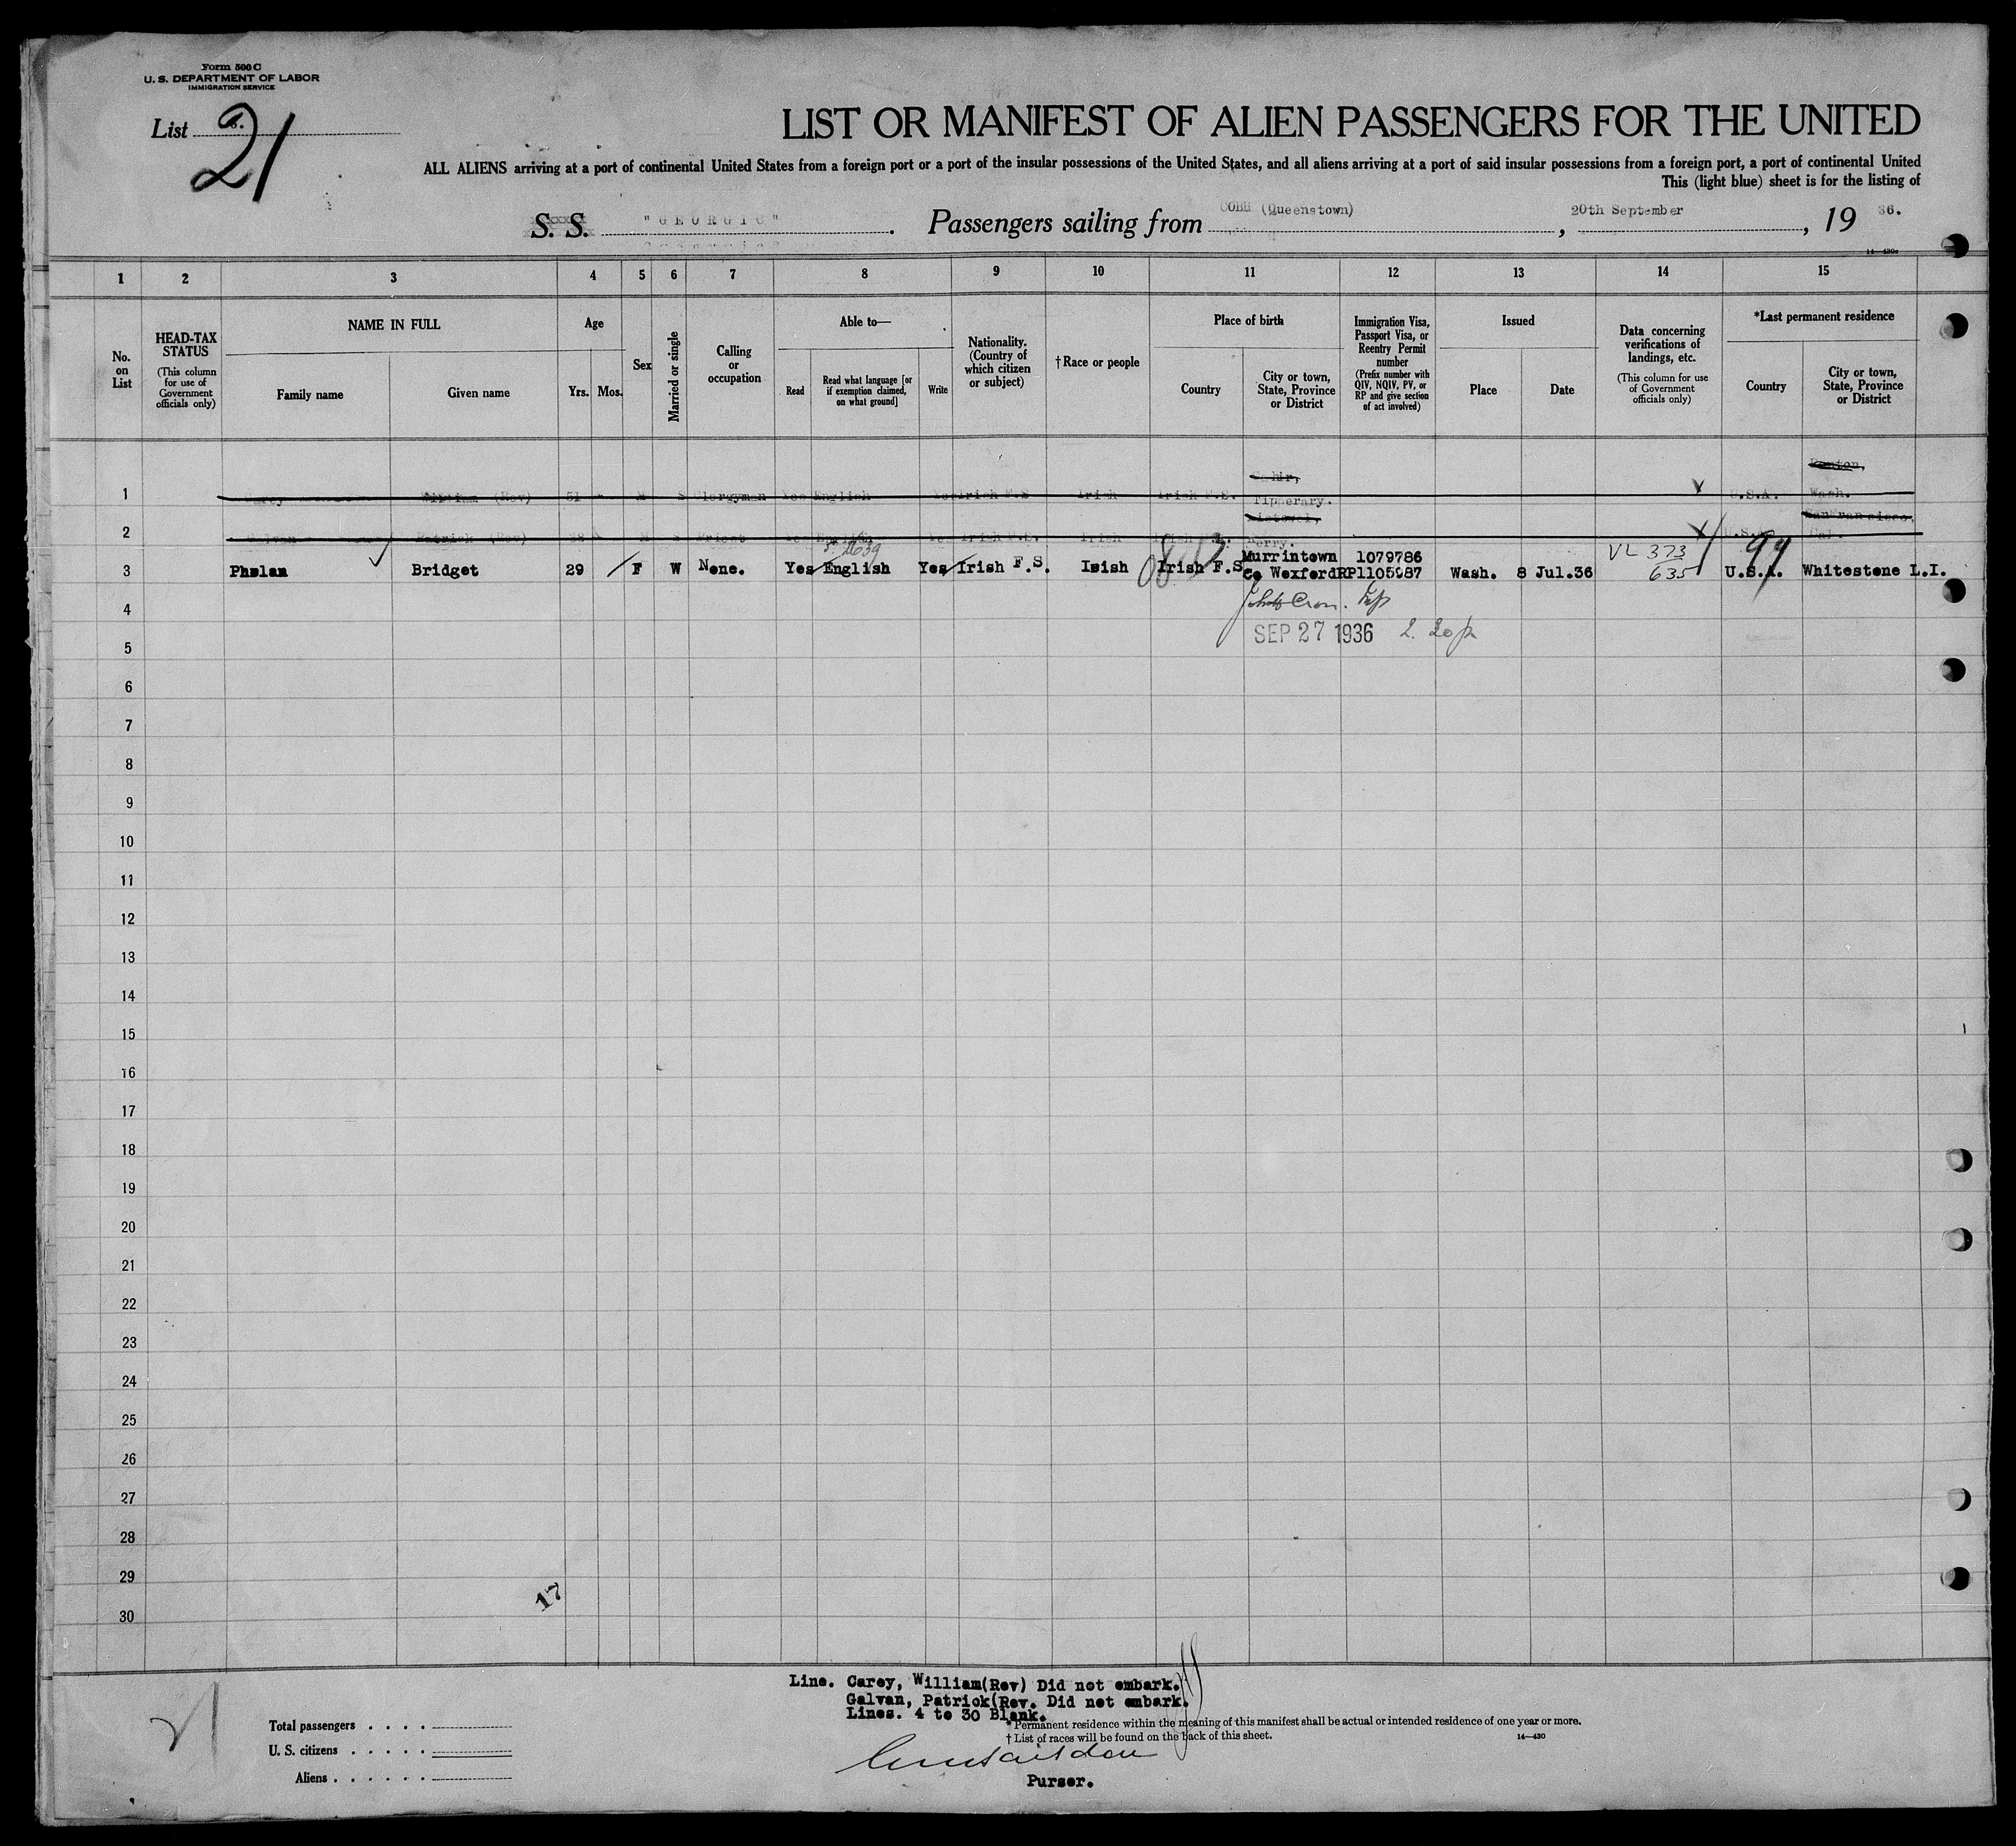 Form 500 C
U. S. DEPARTMENT OF LABOR
IMMIGRATION SERVICE
List
21
LIST OR MANIFEST OF ALIEN PASSENGERS FOR THE UNITED
ALL ALIENS arriving at a port of continental United States from a foreign port or a port of the insular possessions of the United States, and all aliens arriving at a port of said insular possessions from a foreign port, a port of continental United
This (light blue) sheet is for the listing of
S. S. "GEORGIC". Passengers sailing from COBH (Queenstown), 20th September, 19 36.
14—430a
1 2 3 4 5 6 7 8 9 10 11 12 13 14 15
No. on List
HEAD-TAX STATUS (This column for use of Government officials only)
NAME IN FULL
Family name
Given name
Age
Yrs. Mos.
Sex
Married or single
Calling or occupation
Able to—
Read
Read what language [or if exemption claimed, on what ground]
Write
Nationality. (Country of which citizen or subject)
†Race or people
Place of birth
Country
City or town, State, Province or District
Immigration Visa, Passport Visa, or Reentry Permit number (Prefix number with QIV, NQIV, PV, or RP and give section of act involved)
Issued
Place
Date
Data concerning verifications of landings, etc. (This column for use of Government officials only)
*Last permanent residence
Country
City or town, State, Province or District
1 Carey William (Rev) 51 M S Clergyman Yes English Yes Irish F.S. Irish Irish F.S. Cahir, Tipperary. U.S.A. Wash.
2 Galvan Patrick (Rev) M S Priest Yes English Yes Irish F.S. Irish Irish Listowel, Kerry. U.S.A. San Francisco, Cal.
3 Phelan Bridget 29 F W None. Yes English Yes Irish F.S. Irish Irish F.S. Murrintown Co Wexford 1079786 RP1105987 Wash. 8 Jul.36 VL 373 635 99 U.S.A. Whitestone L.I.
4
SEP 27 1936
5
6
7
8
9
10
11
12
13
14
15
16
17
18
19
20
21
22
23
24
25
26
27
28
29
30
17
Line. Carey, William(Rev) Did not embark.
Galvan, Patrick(Rev. Did not embark.
Lines. 4 to 30 Blank.
21
Total passengers . . . .
U. S. citizens . . . . .
Aliens . . . . . .
*Permanent residence within the meaning of this manifest shall be actual or intended residence of one year or more.
† List of races will be found on the back of this sheet.
14—430
Purser.